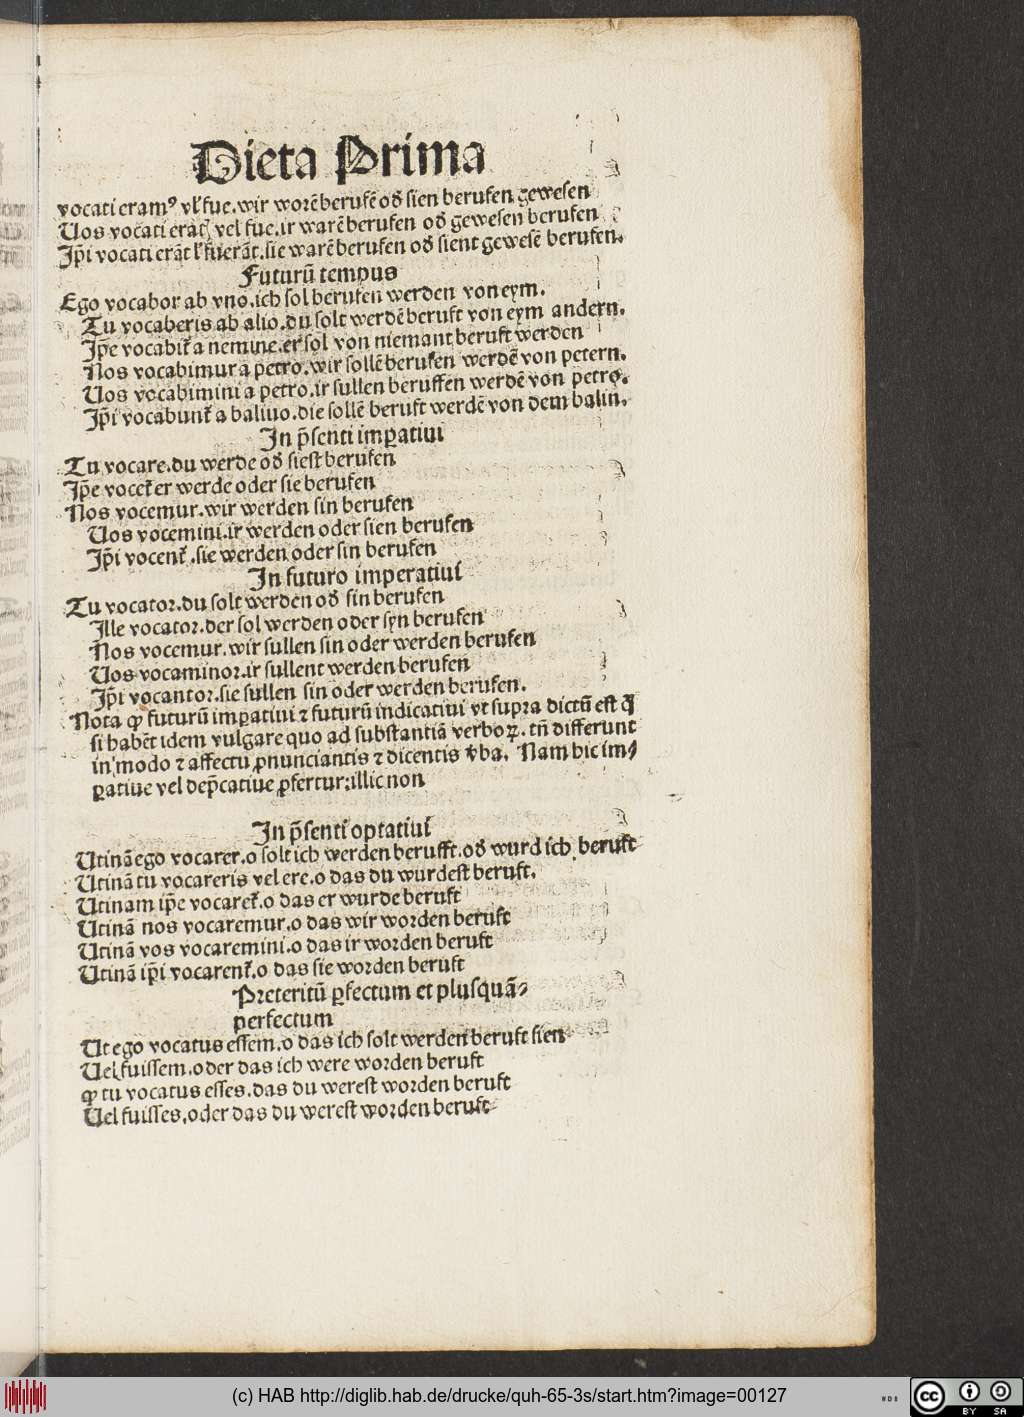 Dieta Prima
vocati eramꝰ vl' fue.wir worē berufē od' sien berufen gewesen
Uos vocati erāt vel fue.ir warē berufen od' gewesen berufen
Ip̄i vocati erāt l' fuerāt.sie warē berufen od' sient gewesē berufen.
Futurū tempus
Ego vocabor ab vno.ich sol berufen werden von eym.
Tu vocaberis ab alio.du solt werdē beruft von eym andern.
Ip̄e vocabit᷑ a nemine.er sol von niemant beruft werden
Nos vocabimur a petro.wir sollē berufen werdē von petern.
Uos vocabimini a petro.ir sullen beruffen werdē von petro.
Ip̄i vocabunt᷑ a baliuo.die sollē beruft werdē von dem balin.
In p̄senti imꝑatiui
Tu vocare.du werde od' siest berufen
Ip̄e vocet᷑ er werde oder sie berufen
Nos vocemur.wir werden sin berufen
Uos vocemini.ir werden oder sien berufen
Ip̄i vocent᷑.sie werden oder sin berufen
In futuro imperatiui
Tu vocator.du solt werden od' sin berufen
Ille vocator.der sol werden oder syn berufen
Nos vocemur.wir sullen sin oder werden berufen
Uos vocaminor.ir sullent werden berufen
Ip̄i vocantor.sie sullen sin oder werden berufen.
Nota ꝙ futurū imꝑatiui ⁊ futurū indicatiui vt supra dictū est
si habēt idem vulgare quo ad substantiā verboꝝ.tn̄ differunt
in modo ⁊ affectu ꝓnunciantis ⁊ dicentis v̄ba. Nam hic im⸗
ꝑatiue vel dep̄catiue ꝓfertur:illic non
In p̄senti optatiui
Utinā ego vocarer.o solt ich werden berufft.od' wurd ich beruft
Utinā tu vocareris vel ere.o das du wurdest beruft.
Utinam ip̄e vocaret᷑.o das er wurde beruft
Utinā nos vocaremur.o das wir worden beruft
Utinā vos vocaremini.o das ir worden beruft
Utinā ip̄i vocarent᷑.o das sie worden beruft
Preteritū ꝑfectum et plusquā⸗
perfectum
Ut ego vocatus essem.o das ich solt werden beruft sien
Uel fuissem.oder das ich were worden beruft
ꝙ tu vocatus esses.das du werest worden beruft
Uel fuisses.oder das du werest worden beruft
(c) HAB http://diglib.hab.de/drucke/quh-65-3s/start.htm?image=00127
WDB
cc BY SA